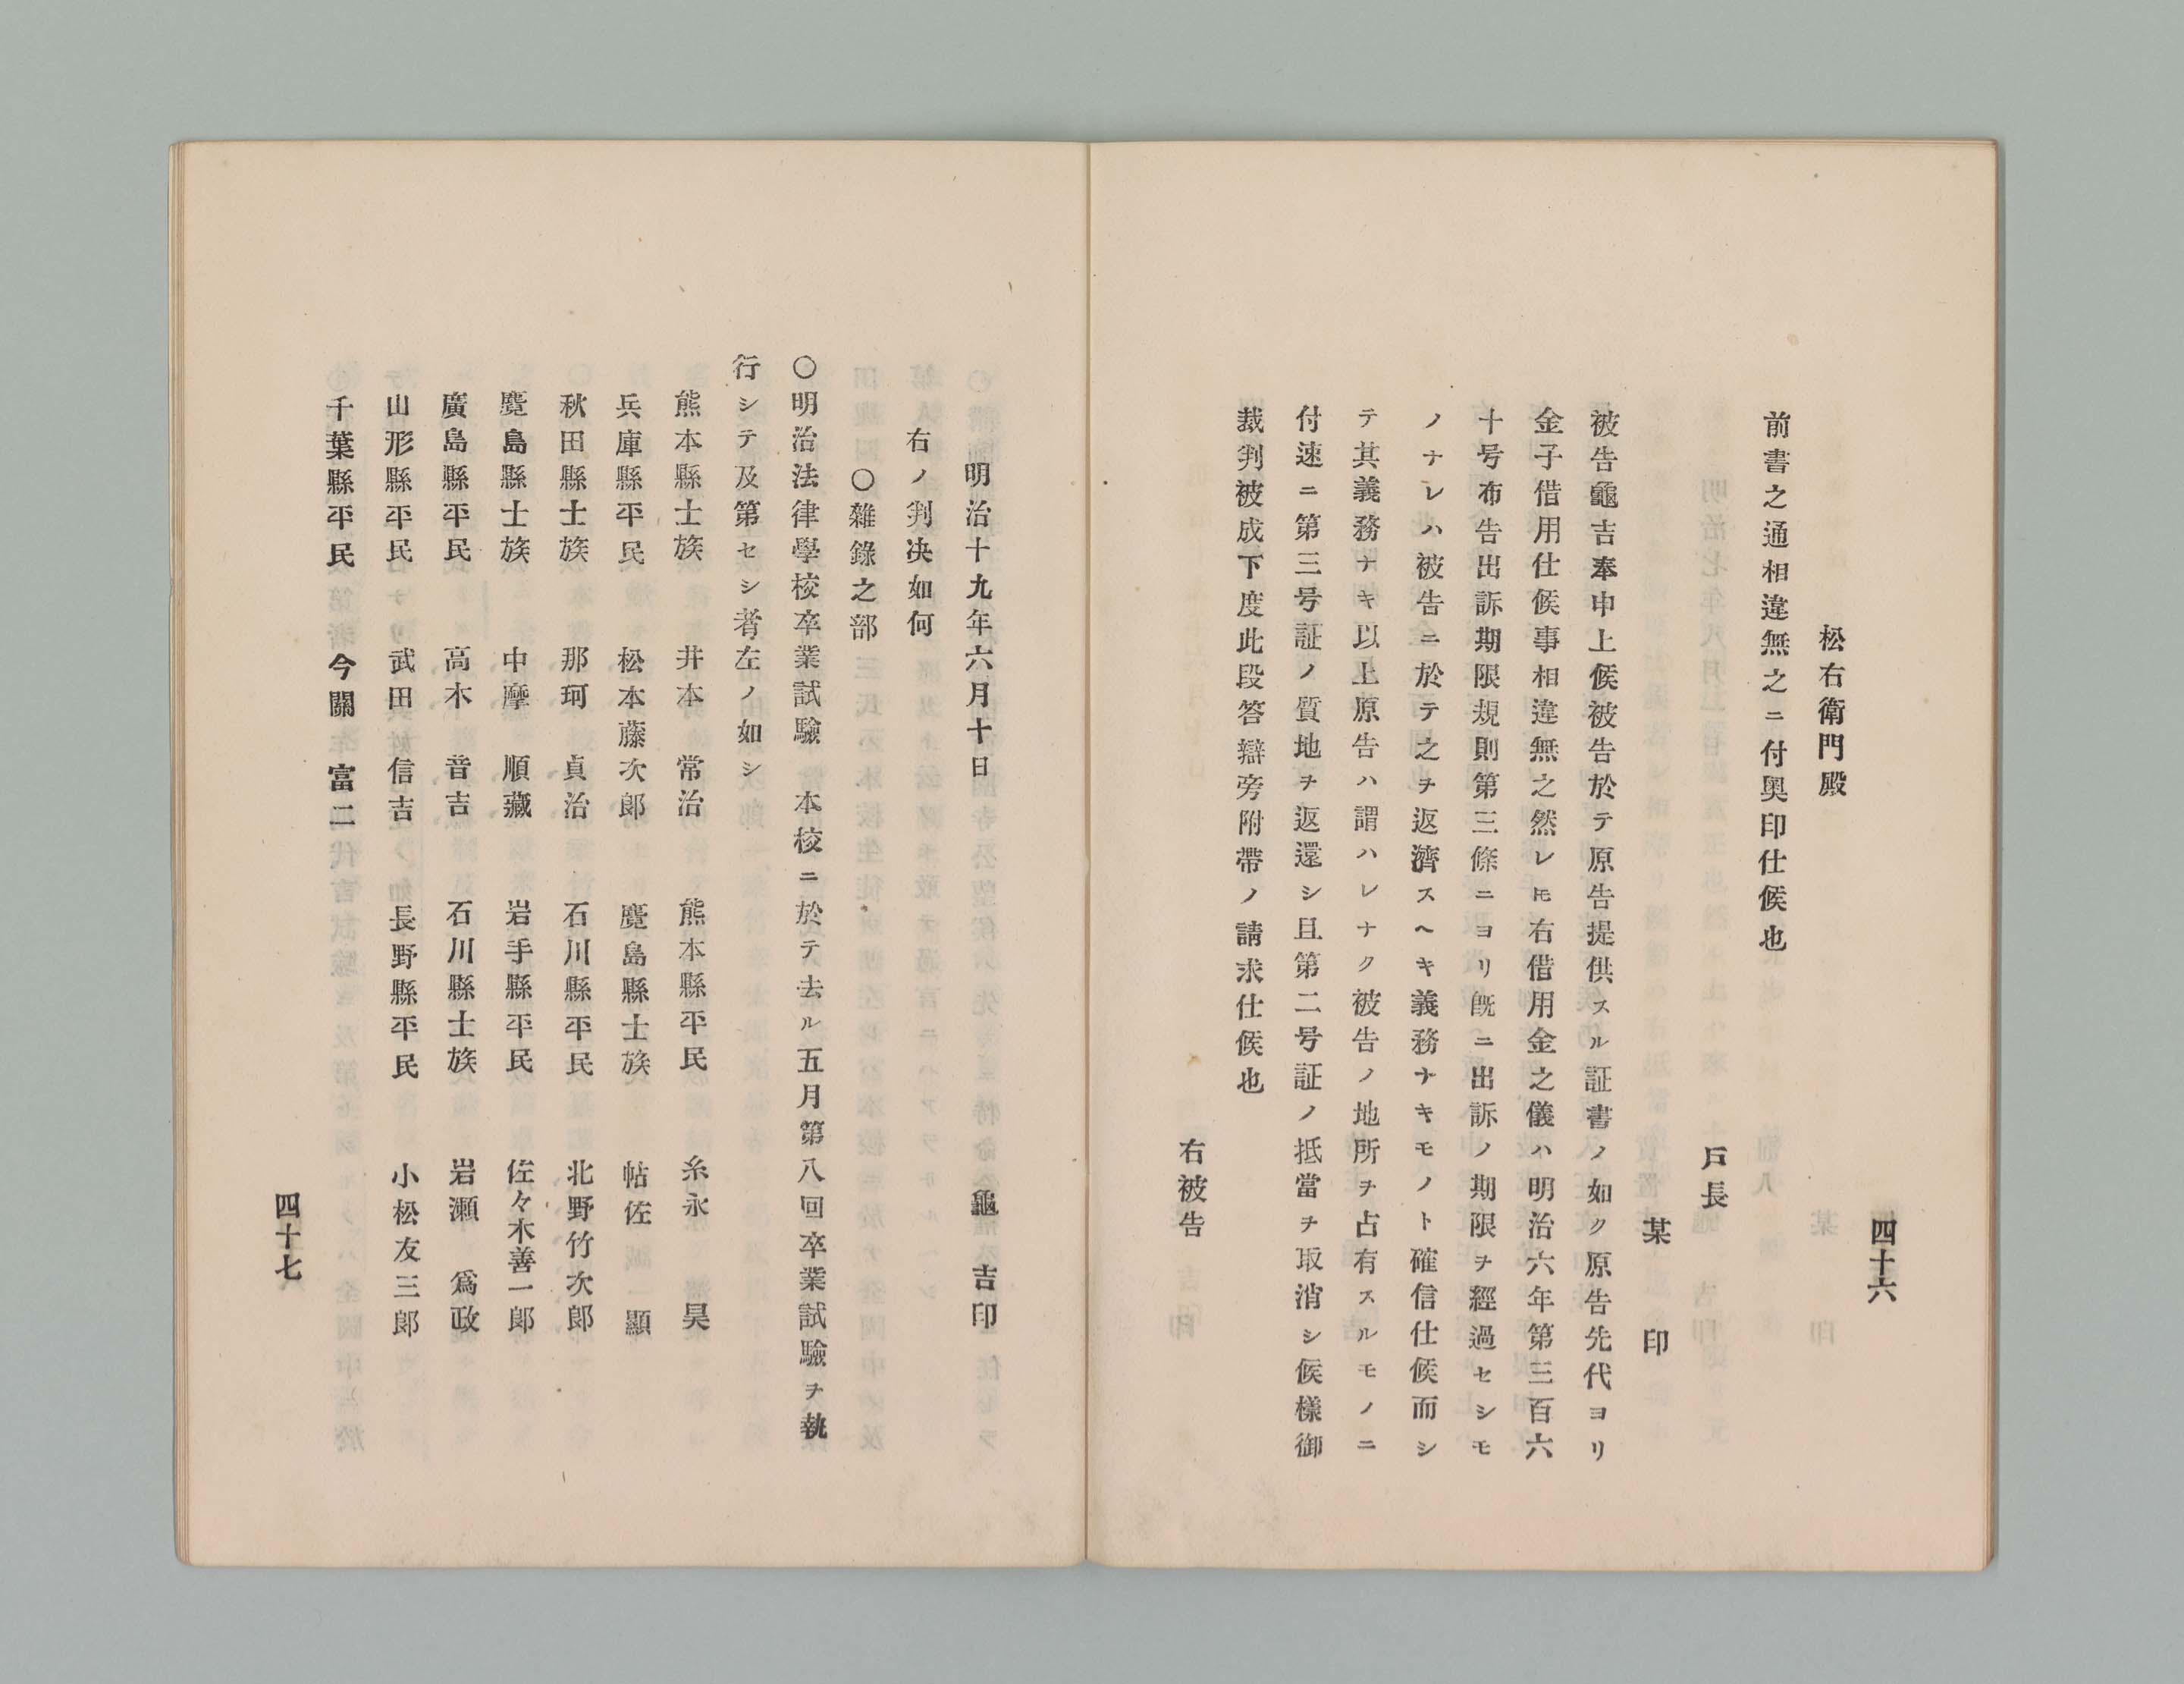 四十六
松右衛門殿
前書之通相違無之ニ付奧印仕候也
戸長
某　印
被告龜吉奉申上候被告於テ原告提供スル証書ノ如ク原告先代ヨリ
金子借用仕候事相違無之然レ𪜈右借用金之儀ハ明治六年第三百六
十号布告出訴期限規則第三條ニヨリ既ニ出訴ノ期限ヲ經過セシモ
ノナレハ被告ニ於テ之ヲ返濟スヘキ義務ナキモノト確信仕候而シ
テ其義務ナキ以上原告ハ謂ハレナク被告ノ地所ヲ占有スルモノニ
付速ニ第三号証ノ質地ヲ返還シ且第二号証ノ抵當ヲ取消シ候樣御
裁判被成下度此段答辯旁附帶ノ請求仕候也
右被告
明治十九年六月十日　龜吉印
右ノ判决如何
○雜錄之部
○明治法律學校卒業試驗　本校ニ於テ去ル五月第八回卒業試驗ヲ執
行シテ及第セシ者左ノ如シ
熊本縣士族　井本常治　熊本縣平民　糸永昊
兵庫縣平民　松本藤次郎　麑島縣士族　帖佐顯
秋田縣士族　那珂貞治　石川縣平民　北野竹次郎
麑島縣士族　中摩順藏　岩手縣平民　佐々木善一郎
廣島縣平民　高木音吉　石川縣士族　岩瀬爲政
山形縣平民　武田信吉　長野縣平民　小松友三郎
千葉縣平民　今關富二
四十七